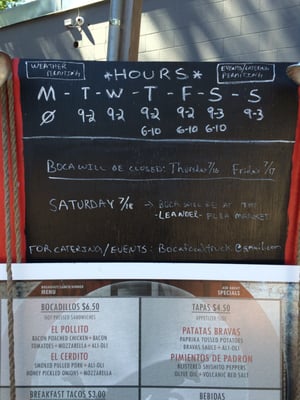 WEATHER PERMITTING
EVENTS/CATERING PERMITTING
*HOURS*
M - T - W - T - F - S - S
Ø 9-2 9-2 9-2 9-2 9-3 9-3
6-10 6-10 6-10
BOCA WILL BE CLOSED: THURSDAY 7/16 FRIDAY 7/17
SATURDAY 7/18 → BOCA WILL BE AT THE
-LEANDER- FLEA MARKET
FOR CATERING/EVENTS: Bocafoodtruck@gmail.com
BREAKFAST/LUNCH/DINNER
MENU
ASK ABOUT
SPECIALS
BOCADILLOS $6.50
HOT PRESSED SANDWICHES
EL PULLITO
BACON POACHED CHICKEN • BACON
TOMATOES • MOZZARELLA • ALI-OLI
EL CERDITO
SMOKED PULLED PORK • ALI-OLI
HONEY PICKLED ONIONS • MOZZARELLA
BREAKFAST TACOS
$3.00
TAPAS $4.50
APPETIZER SIZE
PATATAS BRAVAS
PAPRIKA TOSSED POTATOES
BRAVAS SAUCE • ALI-OLI
PIMIENTOS DE PADRON
BLISTERED SHISHITO PEPPERS
OLIVE OIL • VOLCANIC RED SALT
BEBIDAS